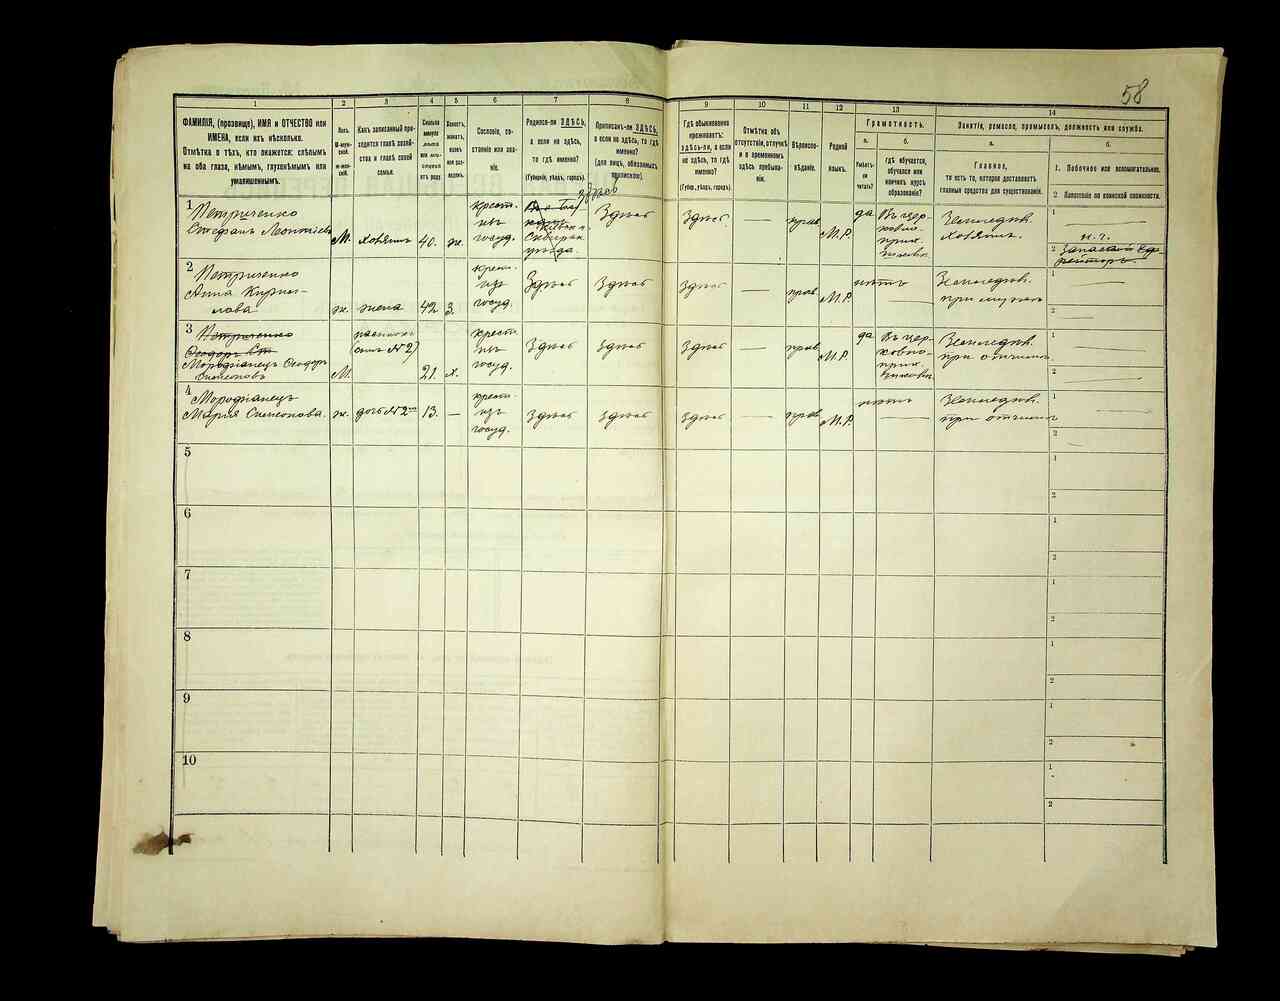 58
1
2
3
4
5
6
7
8
9
10
11
12
13
14
ФАМИЛІЯ, (прозвище), ИМЯ и ОТЧЕСТВО или
ИМЕНА, если ихъ нѣсколько.
Отмѣтка о тѣхъ, кто окажется: слѣпымъ
на оба глаза, нѣмымъ, глухонѣмымъ или
умалишеннымъ.
Полъ.
М-муж-
ской.
Ж-жен-
скій.
Какъ записанный при-
ходится главѣ хозяй-
ства и главѣ своей
семьи.
Сколько
минуло
лѣтъ
отъ роду
Холостъ,
женатъ,
вдовъ
или раз-
веденъ.
Сословіе, со-
стояніе или зва-
ніе.
Родился-ли ЗДѢСЬ,
а если не здѣсь,
то гдѣ именно?
(Губернія, уѣздъ, городъ).
Приписанъ-ли ЗДѢСЬ,
а если не здѣсь, то гдѣ
именно?
(для лицъ, обязанныхъ
припискою).
Гдѣ обыкновенно
проживаетъ:
здѣсь-ли, а если
не здѣсь, то гдѣ
именно?
(Губ., уѣздъ, городъ).
Отмѣтка объ
отсутствіи, отлучкѣ
и о временномъ
здѣсь пребыва-
ніи.
Вѣроиспо-
вѣданіе.
Родной
языкъ.
Грамотность.
а.
Умѣетъ-
ли
читать?
б.
гдѣ обучается,
обучался или
кончилъ курсъ
образованія?
Занятіе, ремесло, промыселъ, должность или служба.
а.
Главное,
то есть то, которое доставляетъ
главныя средства для существованія.
б.
1. Побочное или вспомогательное.
2 Положеніе по воинской повинности.
1
Петриченко
Стефанъ Леонтіевъ
М.
хозяинъ
40.
ж.
крест.
изъ
госуд.
здѣсь
уѣзда.
Здѣсь
Здѣсь
—
прав.
М.Р.
да
Въ цер-
ковно-
прих.
Земледѣл.
хозяинъ.
1 —
н.г.
2 Запасной Еф-
рейторъ.
2
Петриченко
Анна Кирил-
лова
ж.
жена
42
З.
крест.
изъ
госуд.
Здѣсь
Здѣсь
Здѣсь
—
прав.
М.Р.
нѣтъ
—
Земледѣл.
при мужѣ
1 —
2 —
3
Петриченко
Ѳеодоръ Ст
Ѳеодоръ
М.
пасынокъ
(сынъ №2)
21.
х.
крест.
изъ
госуд.
Здѣсь
Здѣсь
Здѣсь
—
прав.
М.Р.
да
Въ цер-
ковно-
прих.
Земледѣл.
при отчимѣ
1 —
2 —
4
Мария
ж.
дочь №2
13.
—
крест.
изъ
госуд.
Здѣсь
Здѣсь
Здѣсь
—
прав.
М.Р.
нѣтъ
—
Земледѣл.
при отчимѣ
1 —
2 —
5
1
2
6
1
2
7
1
2
8
1
2
9
1
2
10
1
2